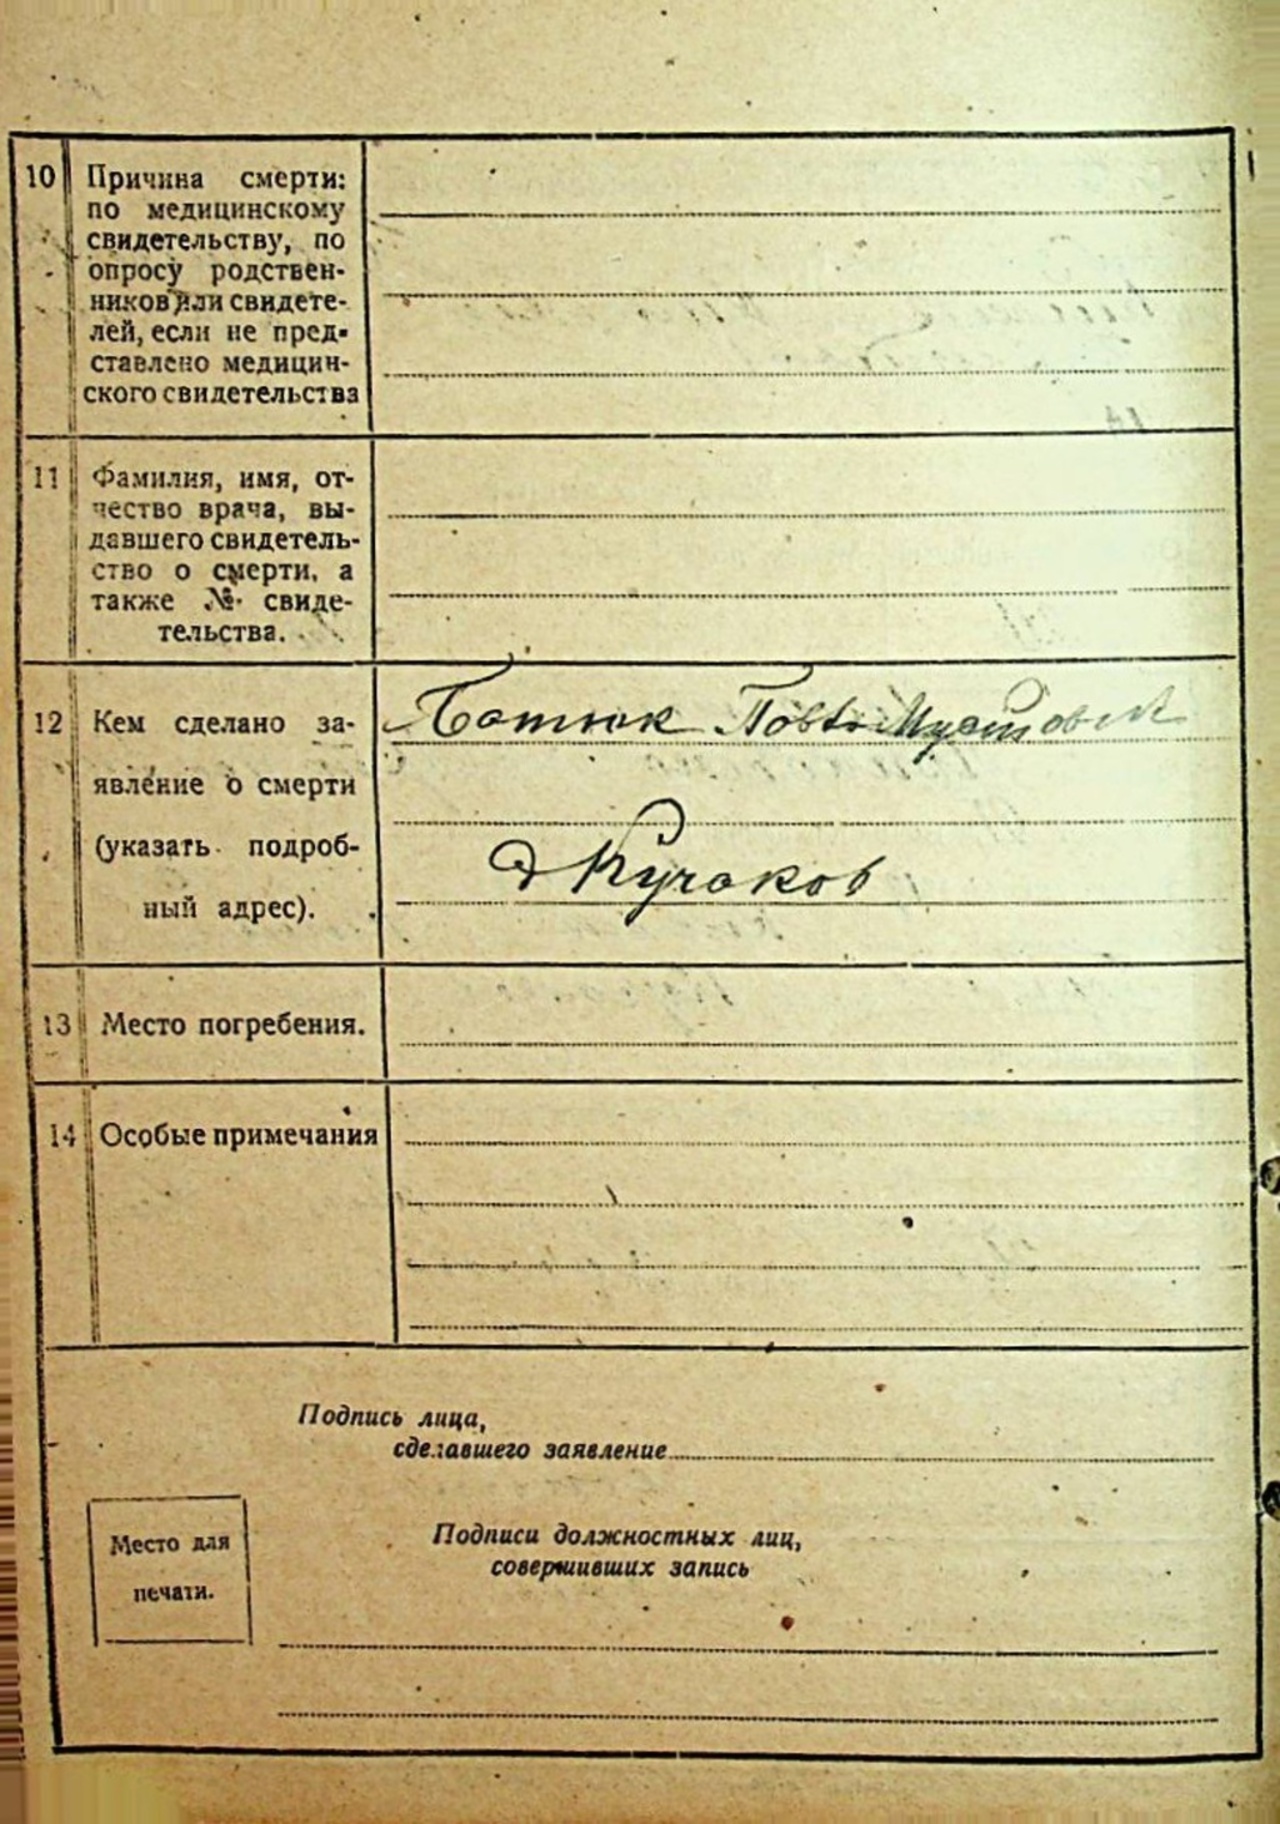 10 Причина смерти:
по медицинскому
свидетельству, по
опросу родствен-
ников или свидете-
лей, если не пред-
ставлено медицин-
ского свидетельства
11 Фамилия, имя, от-
чество врача, вы-
давшего свидетель-
ство о смерти, а
также № свиде-
тельства.
12 Кем сделано за-
явление о смерти
(указать подроб-
ный адрес).
Батюк
Кучаков
13 Место погребения.
14 Особые примечания
Подпись лица,
сделавшего заявление
Место для
печати.
Подписи должностных лиц,
совершивших запись